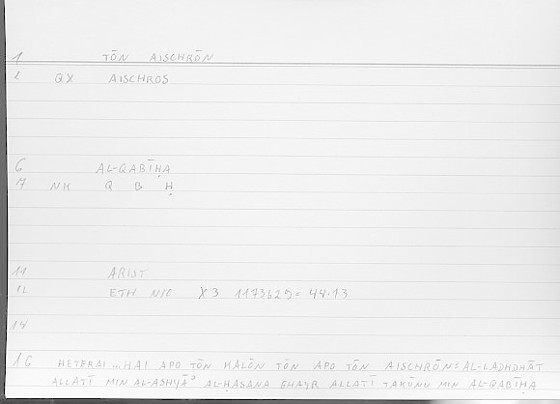 1 TŌN AISCHRŌN
2 QX AISCHROS
6 AL-QABĪḤA
7 NK Q B Ḥ
11 ARIST
12 ETH NIC X3 1173b29 = 44.13
14
16 HETERAI ... HAI APO TŌN KALŌN TŌN APO TŌN AISCHRŌN = AL-LADHDHĀT
ALLATĪ MIN AL-ASHYĀʾ AL-ḤASANA GHAYR ALLATĪ TAKŪNU MIN AL-QABĪḤA